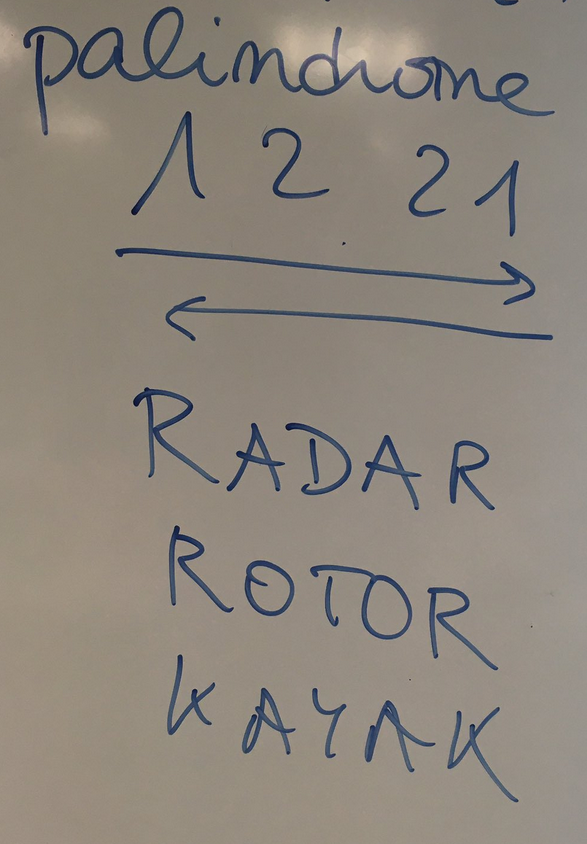 palindrome
1 2 2 1
RADAR
ROTOR
KAYAK